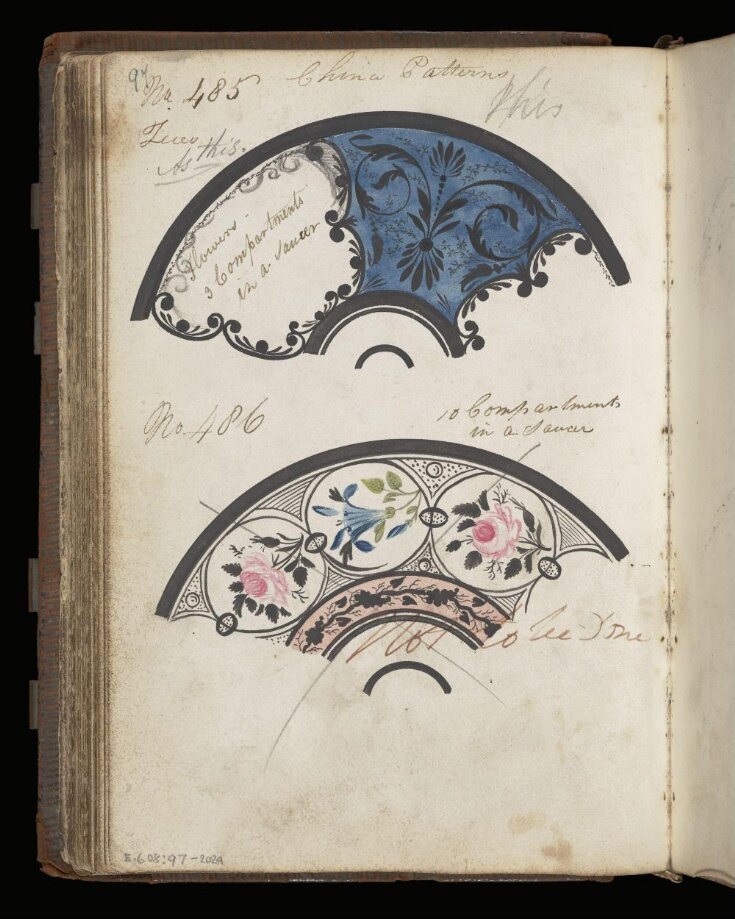 97
No 485
China Patterns
This
As this.
Flowers -
3 Compartments
in a Saucer
No. 486
10 Compartments
in a Saucer
Not to be Done
E.608:97-2024